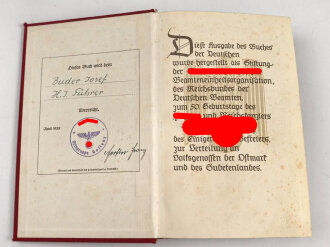 Dieses Buch wird dem
Zuder Josef
H.J. Führer
überreicht.
April 1939
Diese Ausgabe des Buches
der Deutschen
wurde hergestellt als Stiftung
der
Beamteneinheitsorganisation,
des Reichsbundes der
Deutschen Beamten,
zum 50. Geburtstage des
und Reichskanzlers
des Einigers und Befreiers,
zur Verteilung an
Volksgenossen der Ostmark
und des Sudetenlandes.